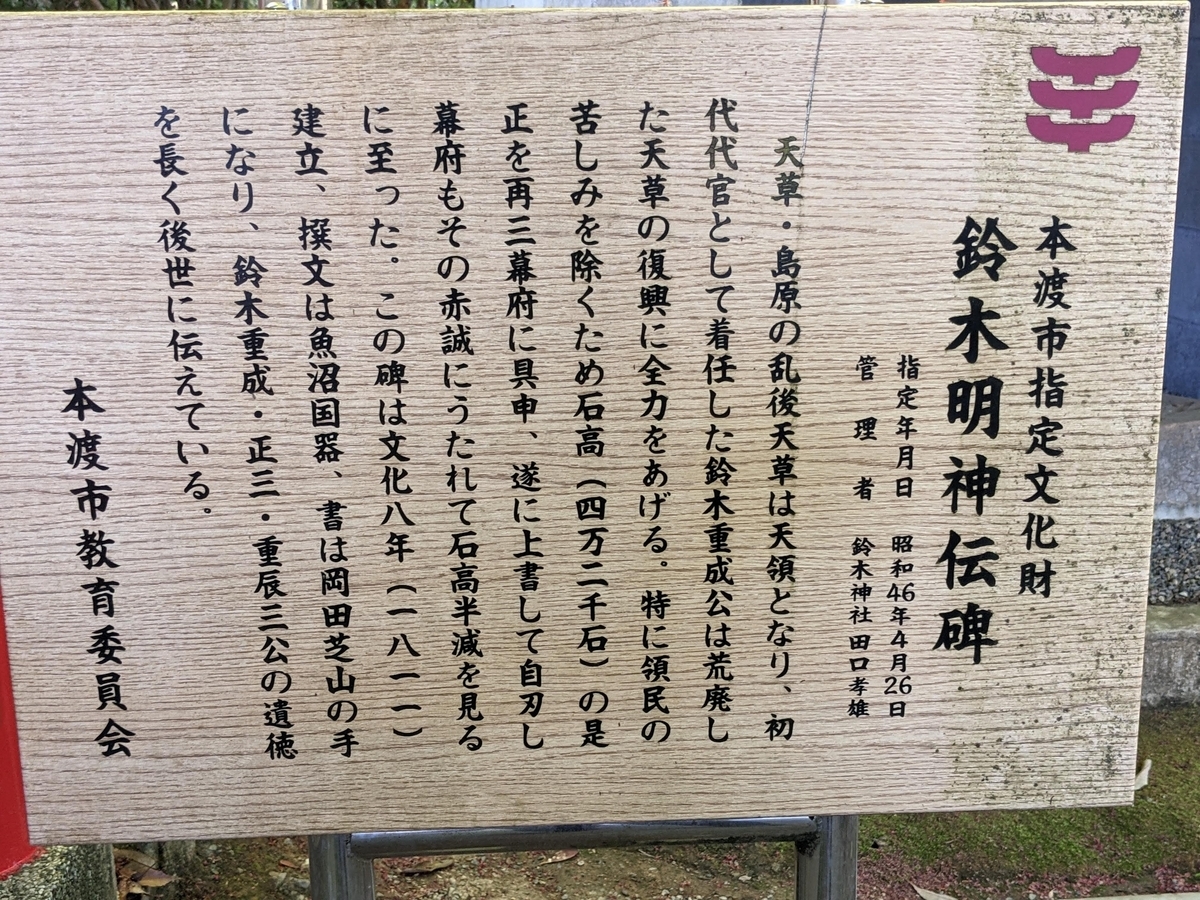 本渡市指定文化財
鈴木明神伝碑
指定年月日 昭和46年4月26日
管理者 鈴木神社 田口孝雄
天草・島原の乱後天草は天領となり、初
代代官として着任した鈴木重成公は荒廃し
た天草の復興に全力をあげる。特に領民の
苦しみを除くため石高（四万二千石）の是
正を再三幕府に具申、遂に上書して自刃し
幕府もその赤誠にうたれて石高半減を見る
に至った。この碑は文化八年（一八一一）
建立、撰文は魚沼国器、書は岡田芝山の手
になり、鈴木重成・正三・重辰三公の遺徳
を長く後世に伝えている。
本渡市教育委員会